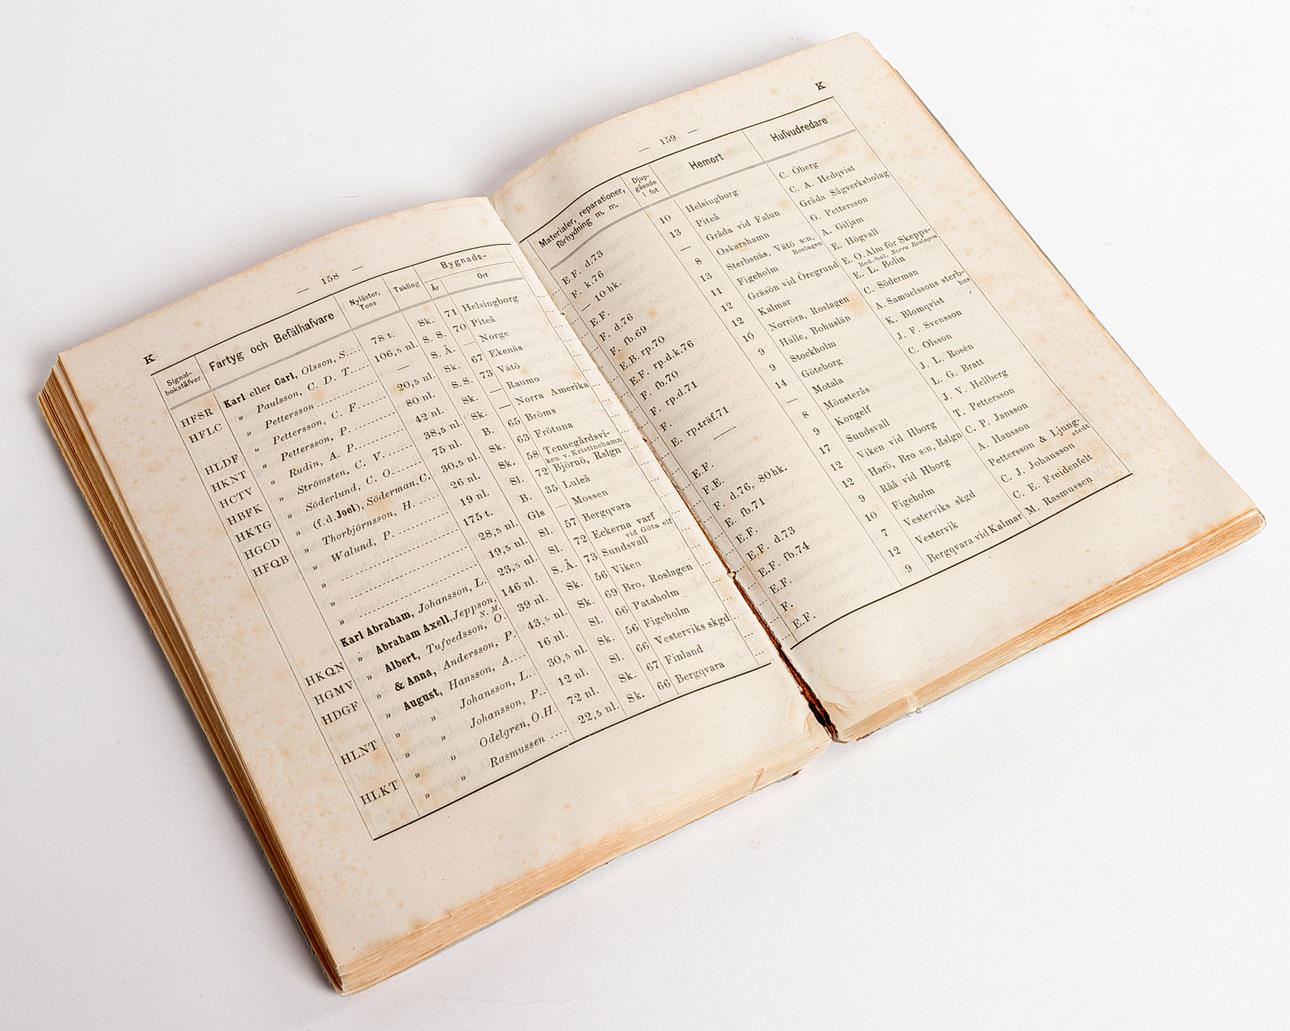 K
— 158 —
Signal-
bokstäfver
Fartyg och Befälhafvare
Nyläster,
Tons
Takling
Bygnads-
År
Ort
HFSR Karl eller Carl, Olsson, S.... 78 t. Sk. 71 Helsingborg
HFLC » Paulsson, C. D. T. 106,5 nl. S. S. 70 Piteå
» Pettersson — S. Å. — Norge
HLDF » Pettersson, C. F. 20,5 nl. Sk. 67 Ekenäs
HKNT » Pettersson, P. 80 nl. S.S. 73 Vätö
HCTV » Rudin, A. P. 42 nl. Sk. — Raumo
HBFK » Strömsten, C. V. 38,5 nl. B. — Norra Amerika
HKTG » Söderlund, C. O. 75 nl. Sk. 65 Bröms
HGCD » (f. d. Joel), Söderman, C. 30,5 nl. B. 63 Frötuna
HFQB » Thorbjörnsson, H. 26 nl. Sk. 58 Tennegårdsvi-
ken v. Kristinehamn
» Walund, P. 19 nl. Sl. 72 Björnö, Rslgn
» 175 t. B. 35 Luleå
» 28,5 nl. Gls — Mossen
» 19,5 nl. Sl. 57 Bergqvara
Karl Abraham, Johansson, L. 23,5 nl. Sl. 72 Eckerna varf
vid Göta elf
HKQN » Abraham Axell, Jeppson, N. M. 146 nl. S. Å. 73 Sundsvall
HGMV » Albert, Tufvedsson, O. 39 nl. Sk. 56 Viken
HDGF » & Anna, Andersson, P. 43,5 nl. Sk. 69 Bro, Roslagen
» August, Hansson, A.... 16 nl. Sl. 66 Pataholm
HLNT » » Johansson, L... 30,5 nl. Sk. 56 Figeholm
» » Johansson, P... 12 nl. Sl. 66 Vesterviks skgd
HLKT » » Odelgren, O.H. 72 nl. Sk. 67 Finland
» » Rasmussen .... 22,5 nl. Sk. 66 Bergqvara
— 159 —
K
Materialer, reparationer,
förhydning m. m.
Djup-
gående
fot
Hemort
Hufvudredare
E.F. d.73 10 Helsingborg C. Öberg
F. k.76 13 Piteå C. A. Hedqvist
— 10 hk. — Gråda vid Falun Gråda Sågverksbolag
E.F. 8 Oskarshamn G. Pettersson
F. d.76 13 Sterbsnäs, Vätö s:n, Roslagen A. Giljam
F. fb.69 11 Figeholm E. Högvall
E.B. rp.70 12 Gräsön vid Öregrund E. O. Alm för Skepps-
Red.-bol. Norra Roslagen
E.F. rp.d.k.76 12 Kalmar E. L. Bolin
F. fb.70 10 Norröra, Roslagen C. Söderman
F. rp.d.71 9 Hälle, Bohuslän A. Samuelssons sterb-
hus
E. rp.träf.71 9 Stockholm K. Blomqvist
— 14 Göteborg J. F. Svensson
— Motala C. Olsson
E.F. 8 Mönsterås J. L. Rosén
F.E. 9 Kongelf L. G. Bratt
F. d.76, 80hk. 17 Sundsvall J. V. Hejlberg
E. fb.71 12 Viken vid Hborg T. Pettersson
E.F. d.73 12 Harö, Bro s:n, Rslgn C. P. Jansson
E.F. fb.74 9 Råå vid Hborg A. Hansson
E.F. 10 Figeholm Pettersson & Ljung-
stedt
7 Vesterviks skgd C. J. Johansson
F. 12 Vestervik C. E. Freidenfelt
E.F. 9 Bergqvara vid Kalmar M. Rasmussen